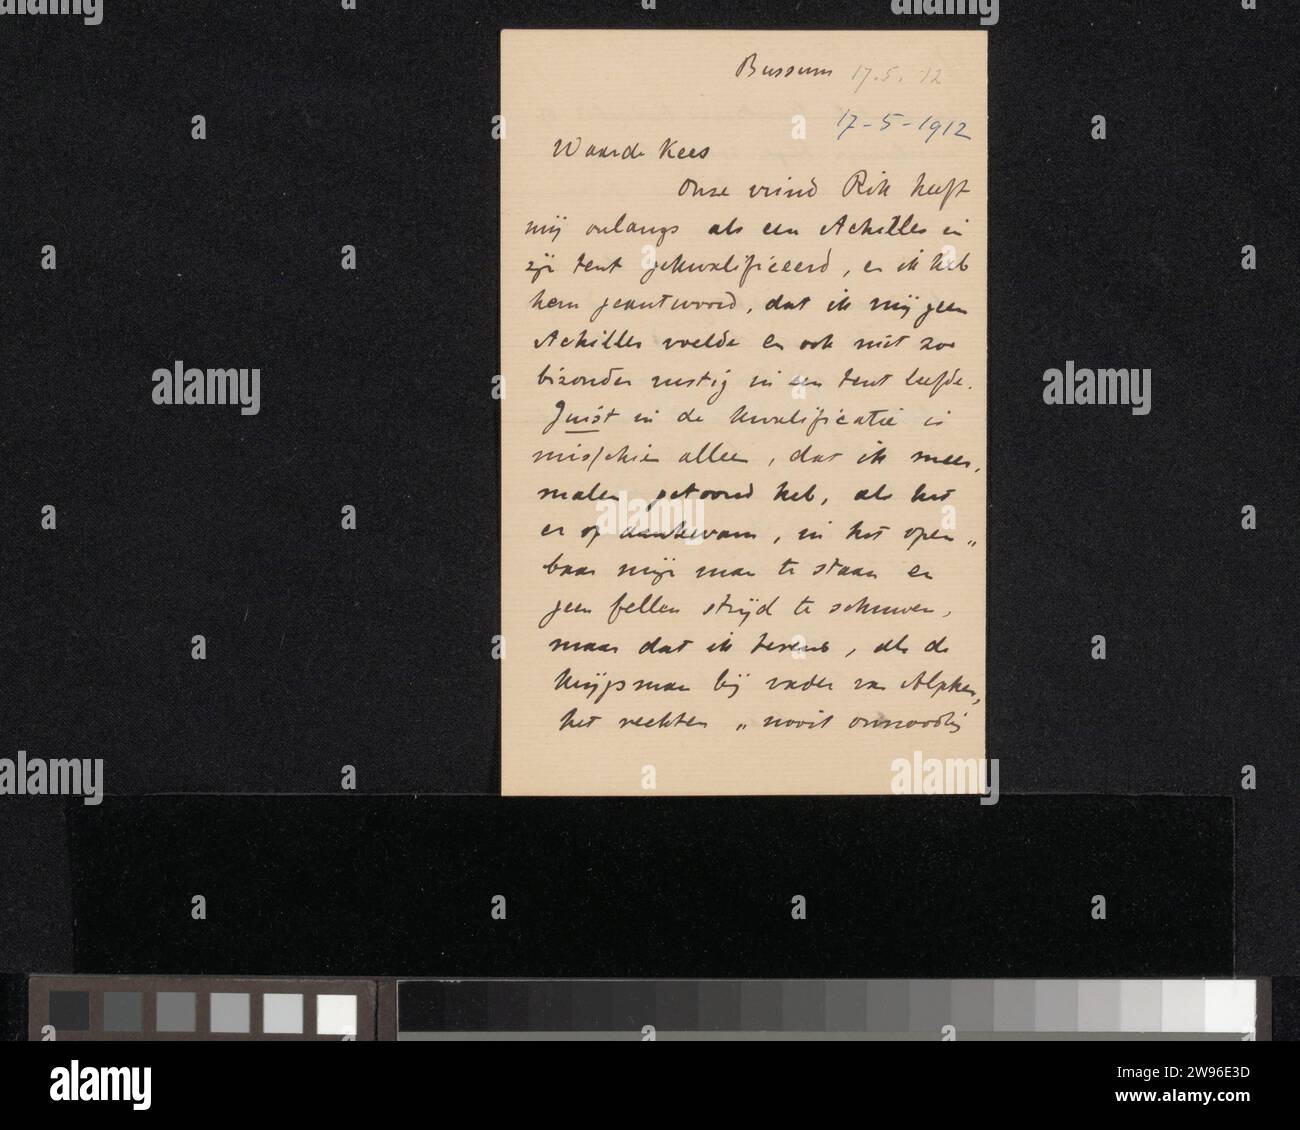 Bussum 17.5.12
17-5-1912
Waarde Kees
Onze vriend Rik heeft
mij onlangs als een Achilles in
zijn tent gekwalificeerd, en ik heb
hem geantwoord, dat ik mij geen
Achilles voelde en ook niet zoo
bizonder rustig in een tent leefde.
Juist in de kwalificatie is
misschien alleen, dat ik meer,
malen getoond heb, als het
er op aankwam, in het open„
baar mijn man te staan en
geen fellen strijd te schuwen,
maar dat ik tevens, als de
krijgsman bij vader van Alphen,
het vechten „nooit onnoodig
alamy
alamy
Image ID: 2W96E3D
www.alamy.com